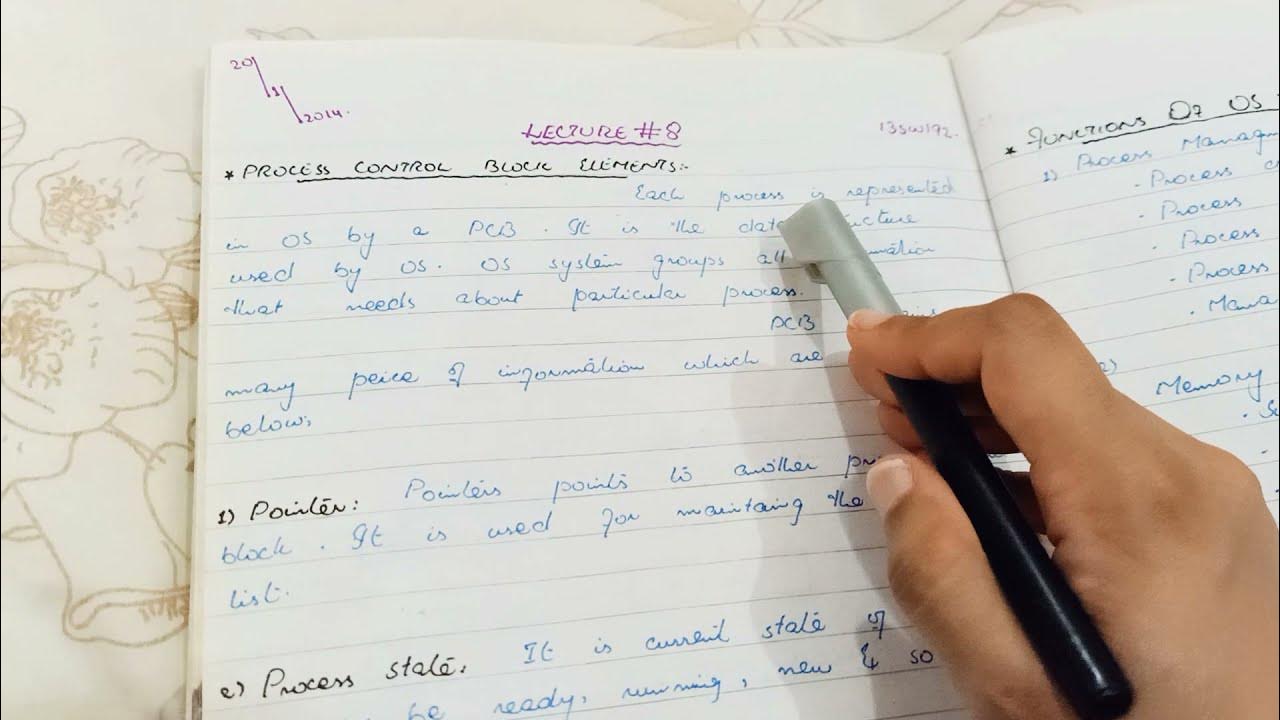 20/1/2014.
LECTURE #8
13SW192.
* PROCESS CONTROL BLOCK ELEMENTS:-
Each process is represented
in OS by a PCB. It is the
used by OS. OS system groups all
that needs about particular process.
PCB
many peice of information which are
below.
1) Pointer: Pointers points to another
block. It is used for maintaing the
list.
2) Process state: It is current state of
be ready, running, new & so
* FUNCTIONS OF OS
1) Process
· Process
· Process
· Process
· Process
2)
Memory